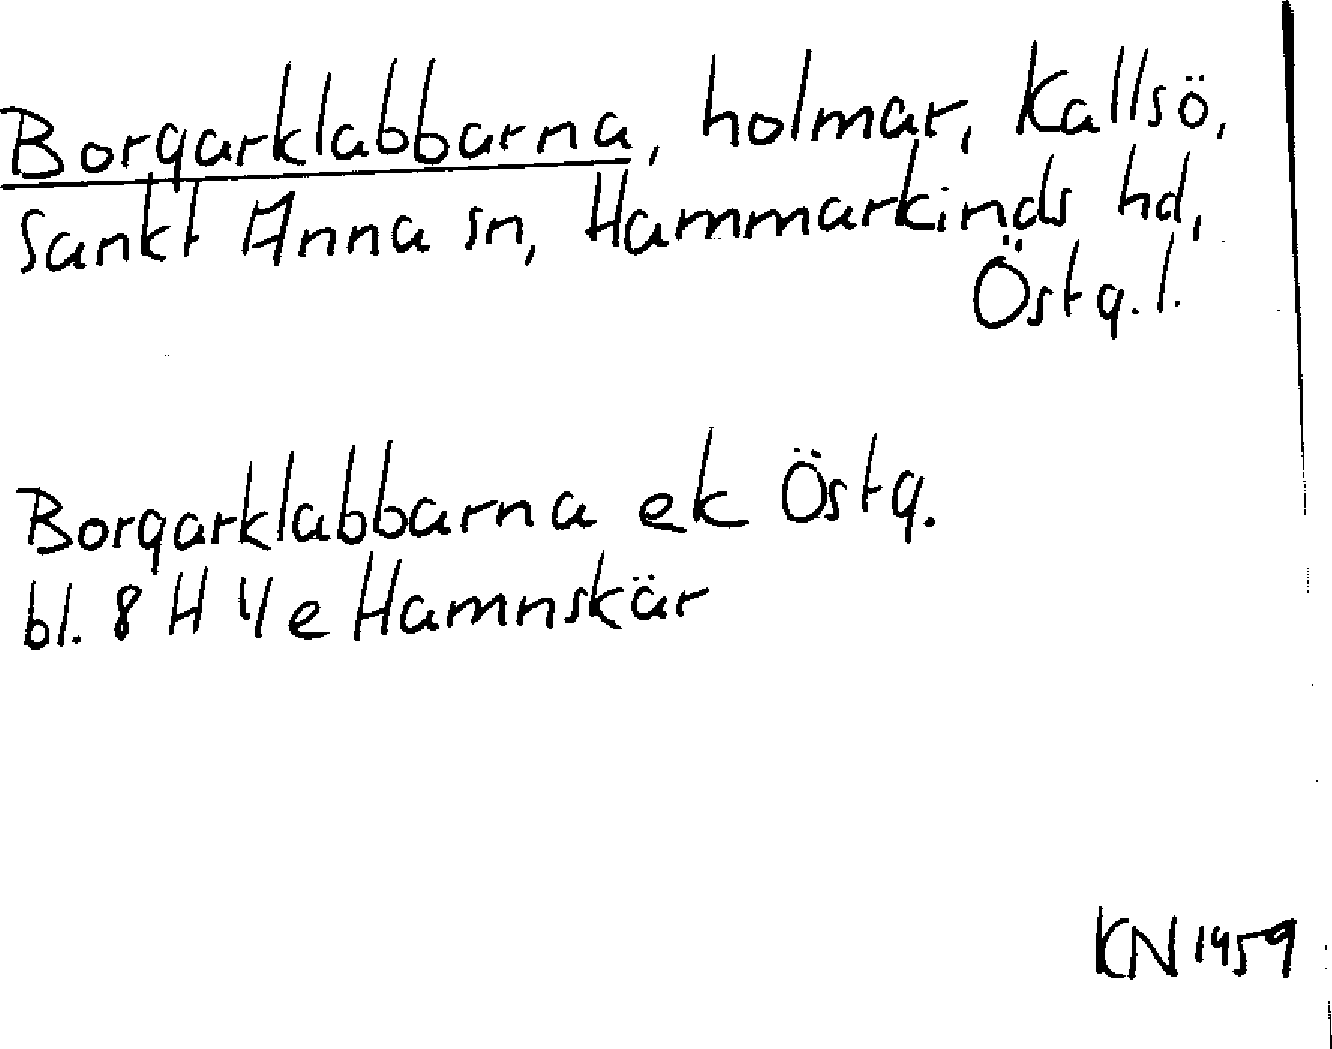 Borgarklabbarna, holmar, Kallsö,
Sankt Anna sn, Hammarkinds hd,
Östg. l.
Borgarklabbarna ek Östg.
bl. 8 H 4e Hamnskär
KN 1959